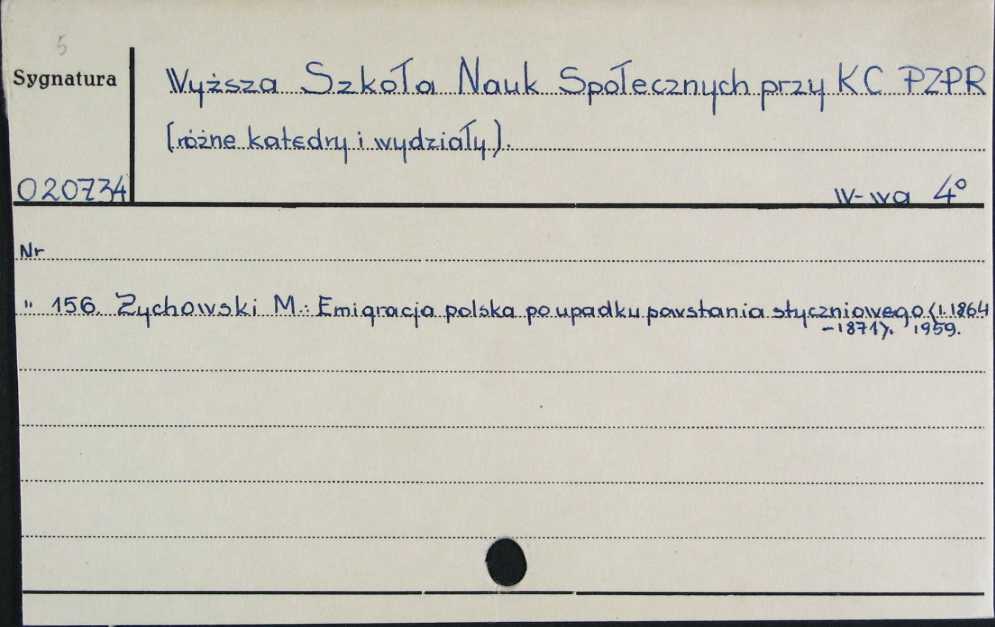 5
Sygnatura
Wyższa Szkoła Nauk Społecznych przy KC PZPR
(różne katedry i wydziały).
020734
W-wa 4°
Nr
" 156. Zychowski M.: Emigracja polska po upadku powstania styczniowego (l. 1864
-1871). 1959.